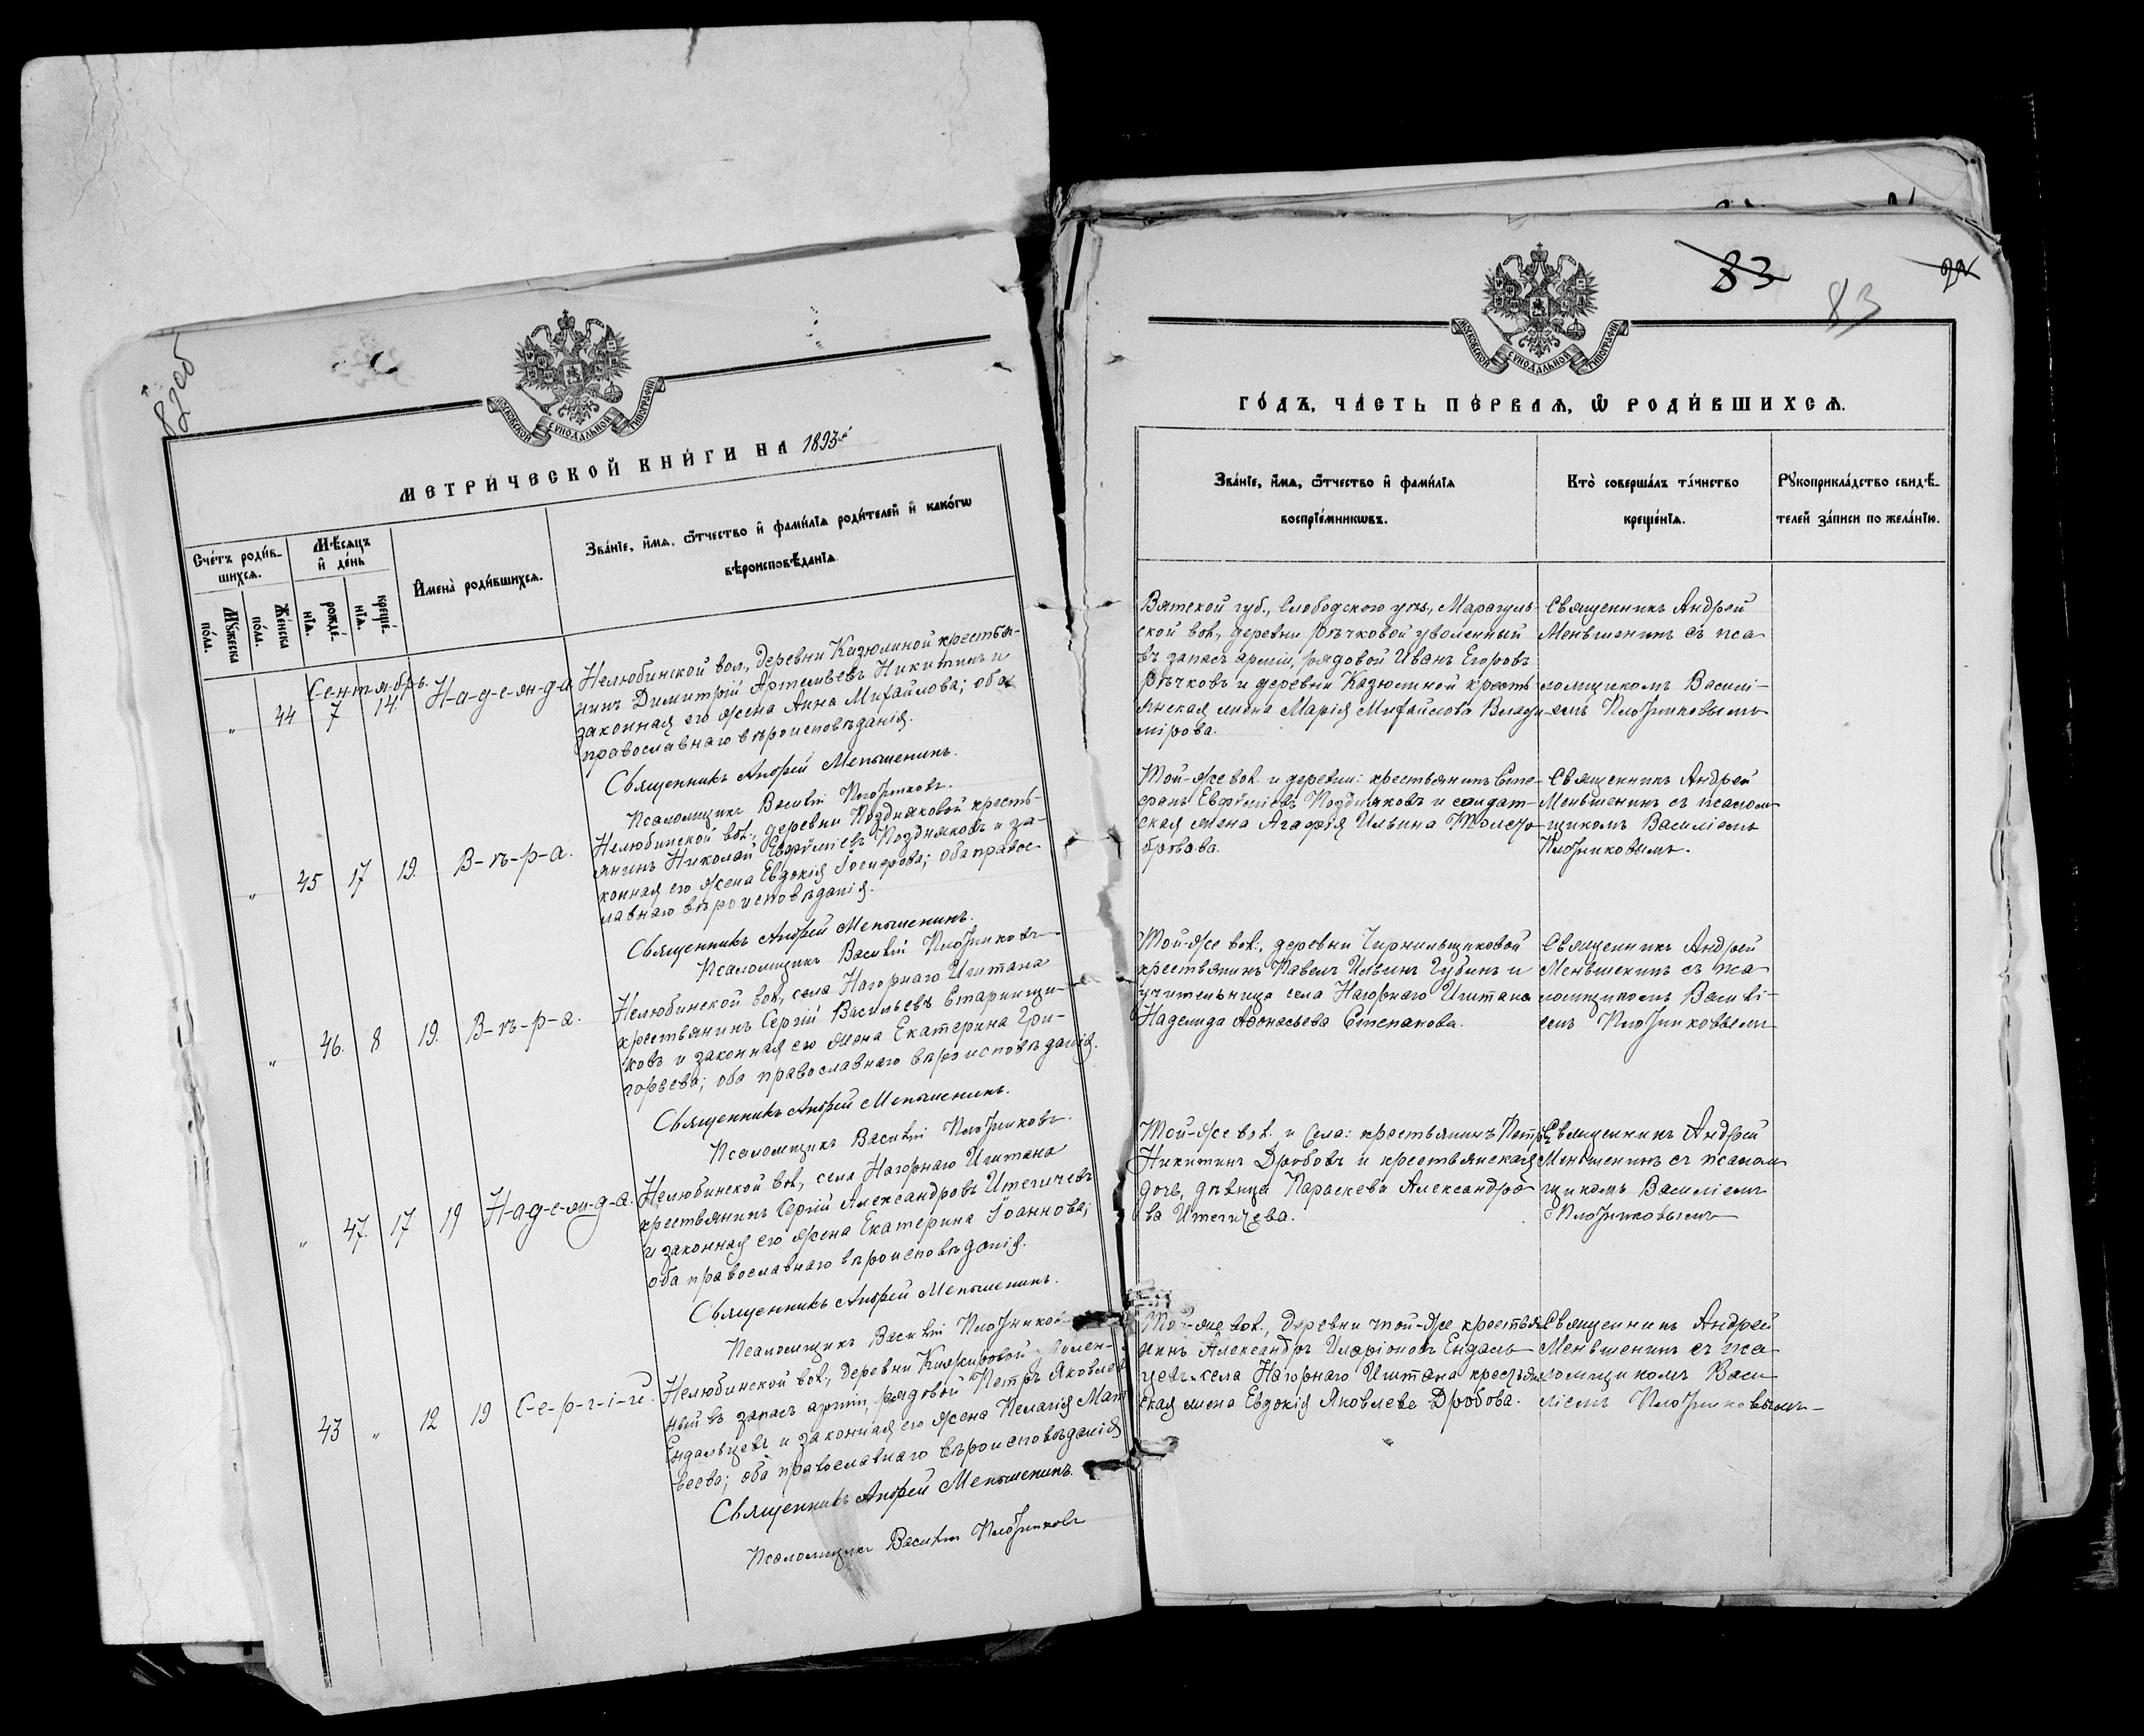 82об
МОСКОВСКОЙ СѴНОДАЛЬНОЙ ТИПОГРАФІИ
МЕТРИ́ЧЕСКОЙ КНИ́ГИ НА 1893й
Сче́тъ роди́в-
шихсѧ.
Мꙋ́жеска
по́ла.
Же́нска
по́ла.
Мѣ́сѧцъ
и҆ де́нь
рожде́-
нїѧ.
креще́-
нїѧ.
И҆мена̀ роди́вшихсѧ.
Зва́нїе, и҆́мѧ, ѻ҆́тчество и҆ фами́лїѧ роди́телей и҆ како́гѡ
вѣроисповѣ́данїѧ
Сентябрь.
" 44 7 14. Н-а-д-е-ж-д-а
Нелюбинской вол., деревни Казюлиной крестья-
нинъ Димитрій Артемьевъ Никитинъ и
законная его жена Анна Михайлова; оба
православнаго вѣроисповѣданія.
Священникъ Андрей Меньшенинъ.
Псаломщикъ Василій Плотниковъ.
" 45 17 19. В-ѣ-р-а.
Нелюбинской вол., деревни Поздняковой кресть-
янинъ Николай Евфиміевъ Поздняковъ и за-
конная его жена Евдокія Іосифова; оба правос-
лавнаго вѣроисповѣданія.
Священникъ Андрей Меньшенинъ.
Псаломщикъ Василій Плотниковъ
" 46. 8 19. В-ѣ-р-а.
Нелюбинской вол., села Нагорнаго Иштана
крестьянинъ Сергій Васильевъ Старинщи-
ковъ и законная его жена Екатерина Гри-
горьева; оба православнаго вѣроисповѣданія.
Священникъ Андрей Меньшенинъ.
Псаломщикъ Василій Плотниковъ.
" 47. 17 19 Н-а-д-е-ж-д-а.
Нелюбинской вол., села Нагорнаго Иштана
крестьянинъ Сергій Александровъ Итегичевъ
и законная его жена Екатерина Іоаннова;
оба православнаго вѣроисповѣданія.
Священникъ Андрей Меньшенинъ.
Псаломщикъ Василій Плотников
43 " 12 19 С-е-р-г-і-й.
Нелюбинской вол., деревни Кижировой уволен-
ный въ запасъ арміи, рядовой Петръ Яковлев
Ендальцевъ и законная его жена Пелагія Мат
вѣева; оба православнаго вѣроисповѣданія
Священникъ Андрей Меньшенинъ.
Псаломщикъ Василій Плотниковъ
83
83
МОСКОВСКОЙ СѴНОДАЛЬНОЙ ТИПОГРАФІИ
ГО́ДЪ, ЧА́СТЬ ПЕ́РВАѦ, Ѽ РОДИ́ВШИХСѦ.
Зва́нїе, и҆́мѧ, ѻ҆́тчество и҆ фами́лїѧ
воспрїе́мникѡвъ.
Кто̀ соверша́лъ та́инство
креще́нїѧ.
Рꙋкоприкла́дство свидѣ́-
телей за́писи по жела́нїю.
Вятской губ., Слободского уѣз., Марагуль-
ской вол., деревни Рѣчковой уволенный
въ запасъ арміи, рядовой Иванъ Егоровъ
Рѣчковъ и деревни Казюлиной кресть
янская жена Марія Михайлова Влади-
мірова.
Священникъ Андрей
Меньшенинъ съ пса
ломщикомъ Василі-
емъ Плотниковымъ
Той-же вол. и деревни: крестьянинъ Сте-
фанъ Евфиміевъ Поздняковъ и солдат-
ская жена Агафія Ильина
Священникъ Андрей
Меньшенинъ съ псалом
щикомъ Василіемъ
Плотниковымъ.
Той-же вол., деревни Чернильщиковой
крестьянинъ Павелъ Ильинъ Губинъ и
учительница села Нагорнаго Иштана
Надежда Афонасьева Степанова.
Священникъ Андрей
Меньшенинъ съ пса
ломщикомъ Василі-
емъ Плотниковымъ
Той-же вол. и села: крестьянинъ Петръ
Никитинъ Дробовъ и крестьянская
дочь, дѣвица Параскева Александро-
ва Итегичева.
Священникъ Андрей
Меньшенинъ съ псалом
щикомъ Василіемъ
Плотниковымъ
Той-же вол., деревни той-же крестья
нинъ Александръ Иларіоновъ Ендаль
цевъ и села Нагорнаго Иштана крестьян
ская жена Евдокія Яковлева Дробова.
Священникъ Андрей
Меньшенинъ съ пса
ломщикомъ Васи
ліемъ Плотниковымъ